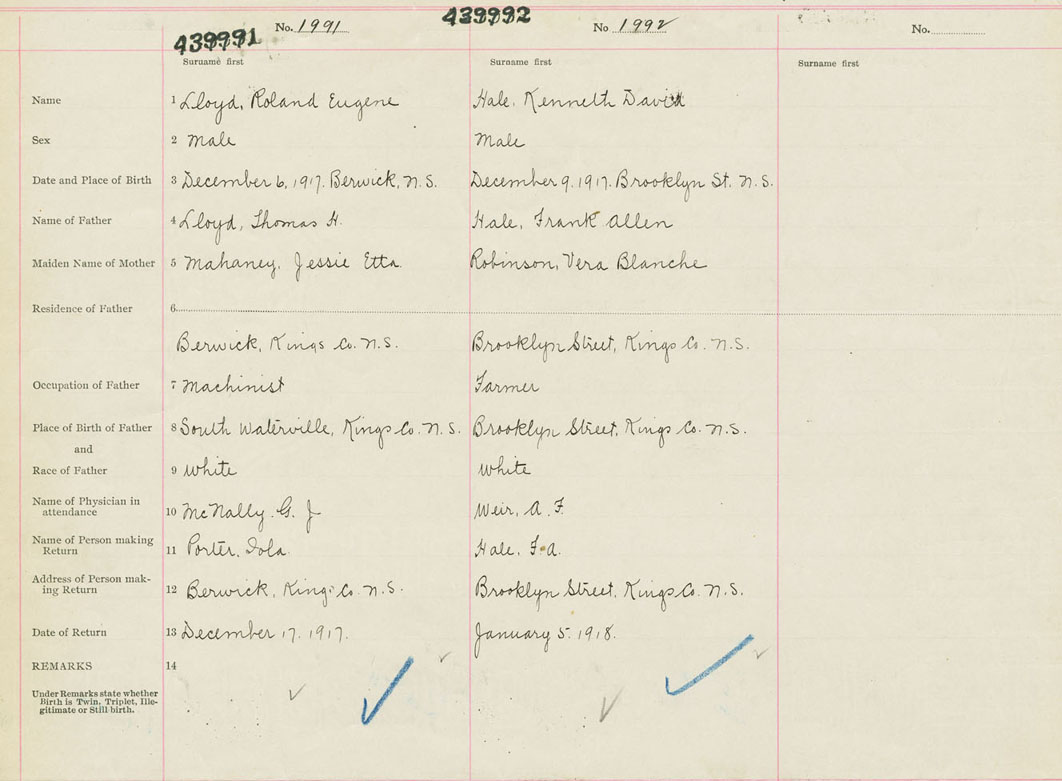 439992
No. 1991
No 1992
No.
439991
Surname first
Surname first
Surname first
Name 1 Lloyd, Roland Eugene Hale, Kenneth David
Sex 2 Male Male
Date and Place of Birth 3 December 6, 1917. Berwick, N.S. December 9. 1917. Brooklyn St. N.S.
Name of Father 4 Lloyd, Thomas H. Hale, Frank Allen
Maiden Name of Mother 5 Mahaney, Jessie Etta. Robinson, Vera Blanche
Residence of Father 6
Berwick, Kings Co. N.S. Brooklyn Street, Kings Co. N.S.
Occupation of Father 7 Machinist Farmer
Place of Birth of Father 8 South Waterville, Kings Co. N.S. Brooklyn Street, Kings Co. N.S.
and
Race of Father 9 White White
Name of Physician in
attendance 10 McNally. G. J Weir, A. F.
Name of Person making
Return 11 Porter, Iola. Hale, F. A.
Address of Person mak-
ing Return 12 Berwick, Kings Co. N.S. Brooklyn Street, Kings Co. N.S.
Date of Return 13 December 17. 1917. January 5. 1918.
REMARKS 14
Under Remarks state whether
Birth is Twin, Triplet, Ille-
gitimate or Still birth.